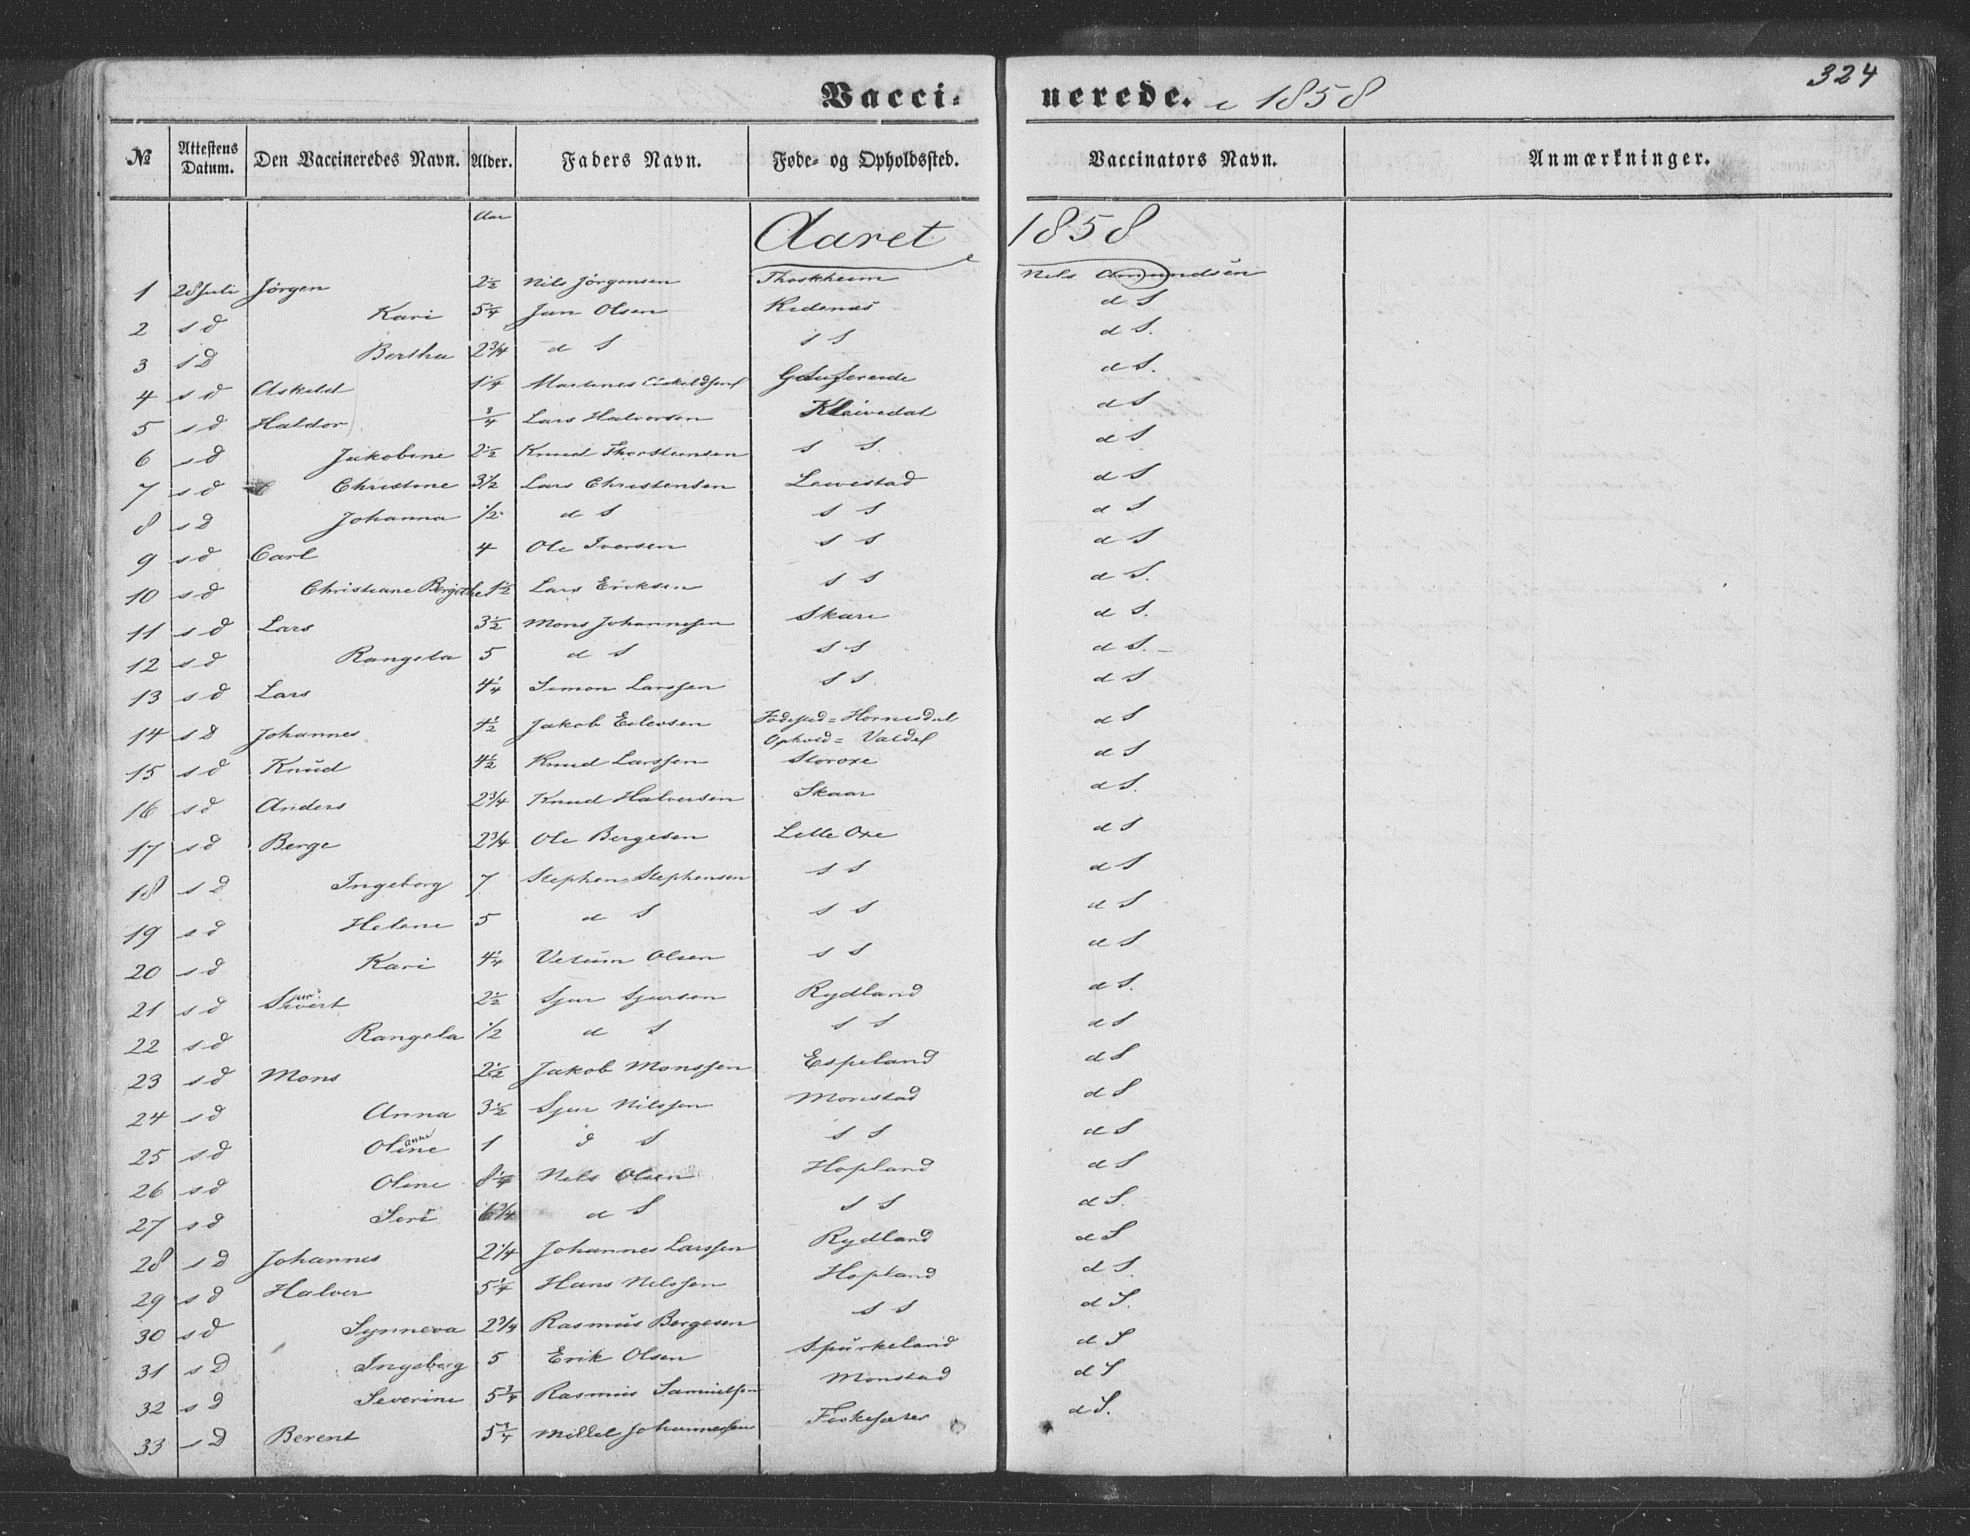 324
Vacci- nerede. i 1858
№ Attestens Datum. Den Vaccineredes Navn. Alder. Faders Navn. Føde- og Opholdssted. Vaccinators Navn. Anmærkninger.
Aar Aaret 1858
1 28 Juli Jörgen 2½ Nils Jörgensen Nils Amundsen
2 s d Kari 5¼ Jan Olsen Ridenæs d S
3 s D Bertha 2¾ d S s S d S.
4 s d Askeld 1¼ d S.
5 s d Haldor ¾ Lars Halversen Kleivedal d S
6 s d Jakobine 2½ Knud Thorsteinsen s S d S
7 s d Christine 3½ Lars Christensen Leivestad d S
8 s D Johanna ½ d S s S d S
9 s d Carl 4 Ole Iversen s S d S
10 s d Christiane Bergithe 1½ Lars Eriksen s S d S.
11 s d Lars 3½ Mons Johannesen Skare d S.
12 s d Rangela 5 d S s S d S.
13 s d Lars 4¼ Simon Larssen s S d S
14 s d Johannes 4½ Jakob Eilevsen Födested = Hornisdal d S
Ophold =
15 s d Knud 4½ Knud Larssen Storoxe d S
16 s d Anders 2¾ Knud Halversen Skaar d S.
17 s d Berge 2¾ Ole Bergesen Lille Oxe d S
18 s D Ingeborg 7 Stephen Stephensen s S d S
19 s d Helene 5 d S s S d S
20 s d Kari 4¼ Olsen s S d S
21 s d Sivert 2½ Sjur Sjursen Rydland d S.
22 s d Rangela ½ d S s S d S
23 s d Mons 2½ Jakob Monssen Espeland d S
24 s d Anna 3½ Sjur Nilssen Monstad d S
25 s d Oline 1 d S s S d S
26 s d Oline 8¼ Nils Olsen Hopland d S
27 s d Seri 6¾ d S s S d S.
28 s D Johannes 2¼ Johannes Larssen Rydland d S
29 s d Halver 5¼ Hans Nilssen Hopland d S.
30 s d Synneva 2¾ Rasmus Bergesen s S d S.
31 s D Ingeborg 5 Erik Olsen Spurkeland d S
32 s D Severine 5¾ Rasmus Samuelsen Monstad d S
33 s D Berent 5¾ Millel Johannessen d S.